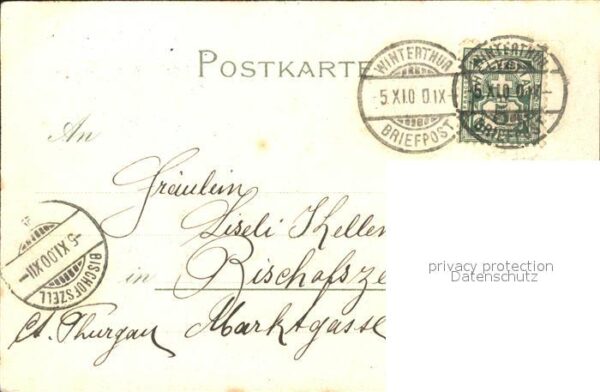 POSTKARTE
WINTERTHUR
-5.XI.0 0.IX-
BRIEFPOST
WINTERTHUR
-5.XI.0 0.IX-
BRIEFPOST
An
Fräulein
Liseli Keller
in Bischofsze
Marktgasse
Ct. Thurgau
-5.XI.00.XII-
BISCHOFSZELL
privacy protection
Datenschutz